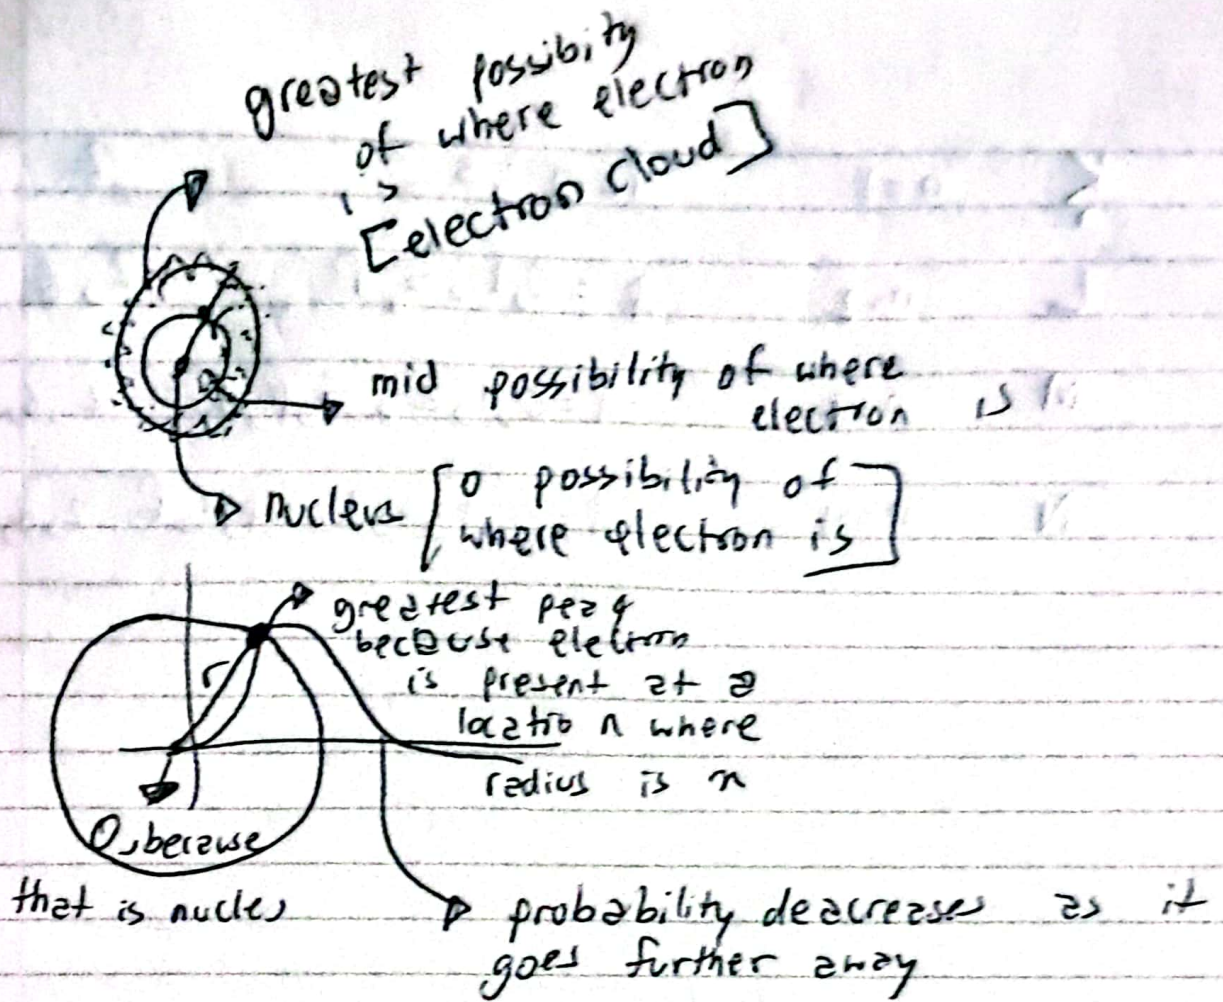 greatest possibity
of where electron
is
[electron cloud]
mid possibility of where
electron is
nucleus [0 possibility of
where electron is]
greatest peaq
because eletron
is present at a
locatio n where
radius is n
r
0, because
that is nucles
probability deacreases as it
goes further away